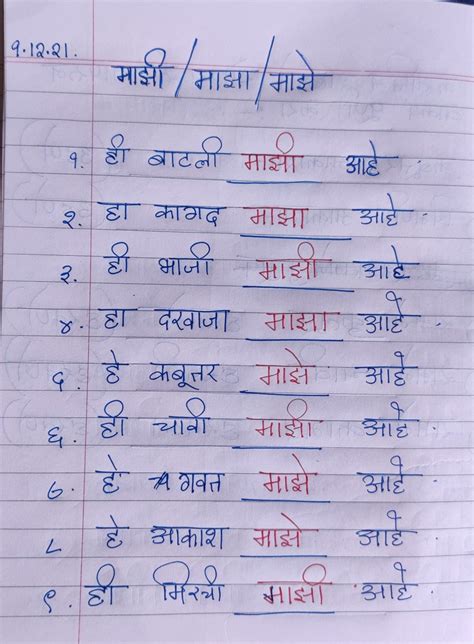 ९.१२.२१.
माझी / माझा / माझे
१. ही बाटली माझी आहे.
२. हा कागद माझा आहे.
३. ही भाजी माझी आहे.
४. हा दरवाजा माझा आहे.
५. हे कबूतर माझे आहे.
६. ही चावी माझी आहे.
७. हे गवत माझे आहे.
८ हे आकाश माझे आहे.
९. ही मिरची माझी आहे.